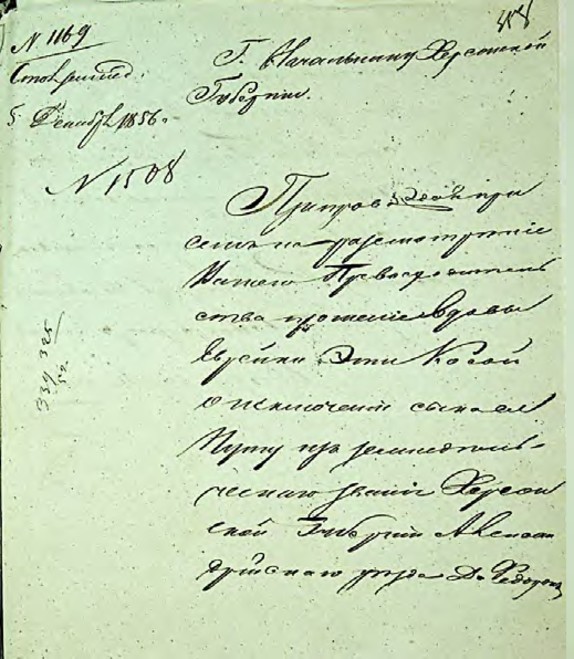 N 1169
5 Декабря 1856 г.
N 1508
Г. Начальнику Херсонской
Губернии.
Препровождая при
семъ на разсмотрѣніе
Вашего Превосходитель
ства прошеніе вдовы
Еврейки Эти Когой
о исключеніи сына ея
изъ земледѣль-
ческаго званія Херсон
ской Губерніи Алексан
дрійскаго уѣзда
339 325
52